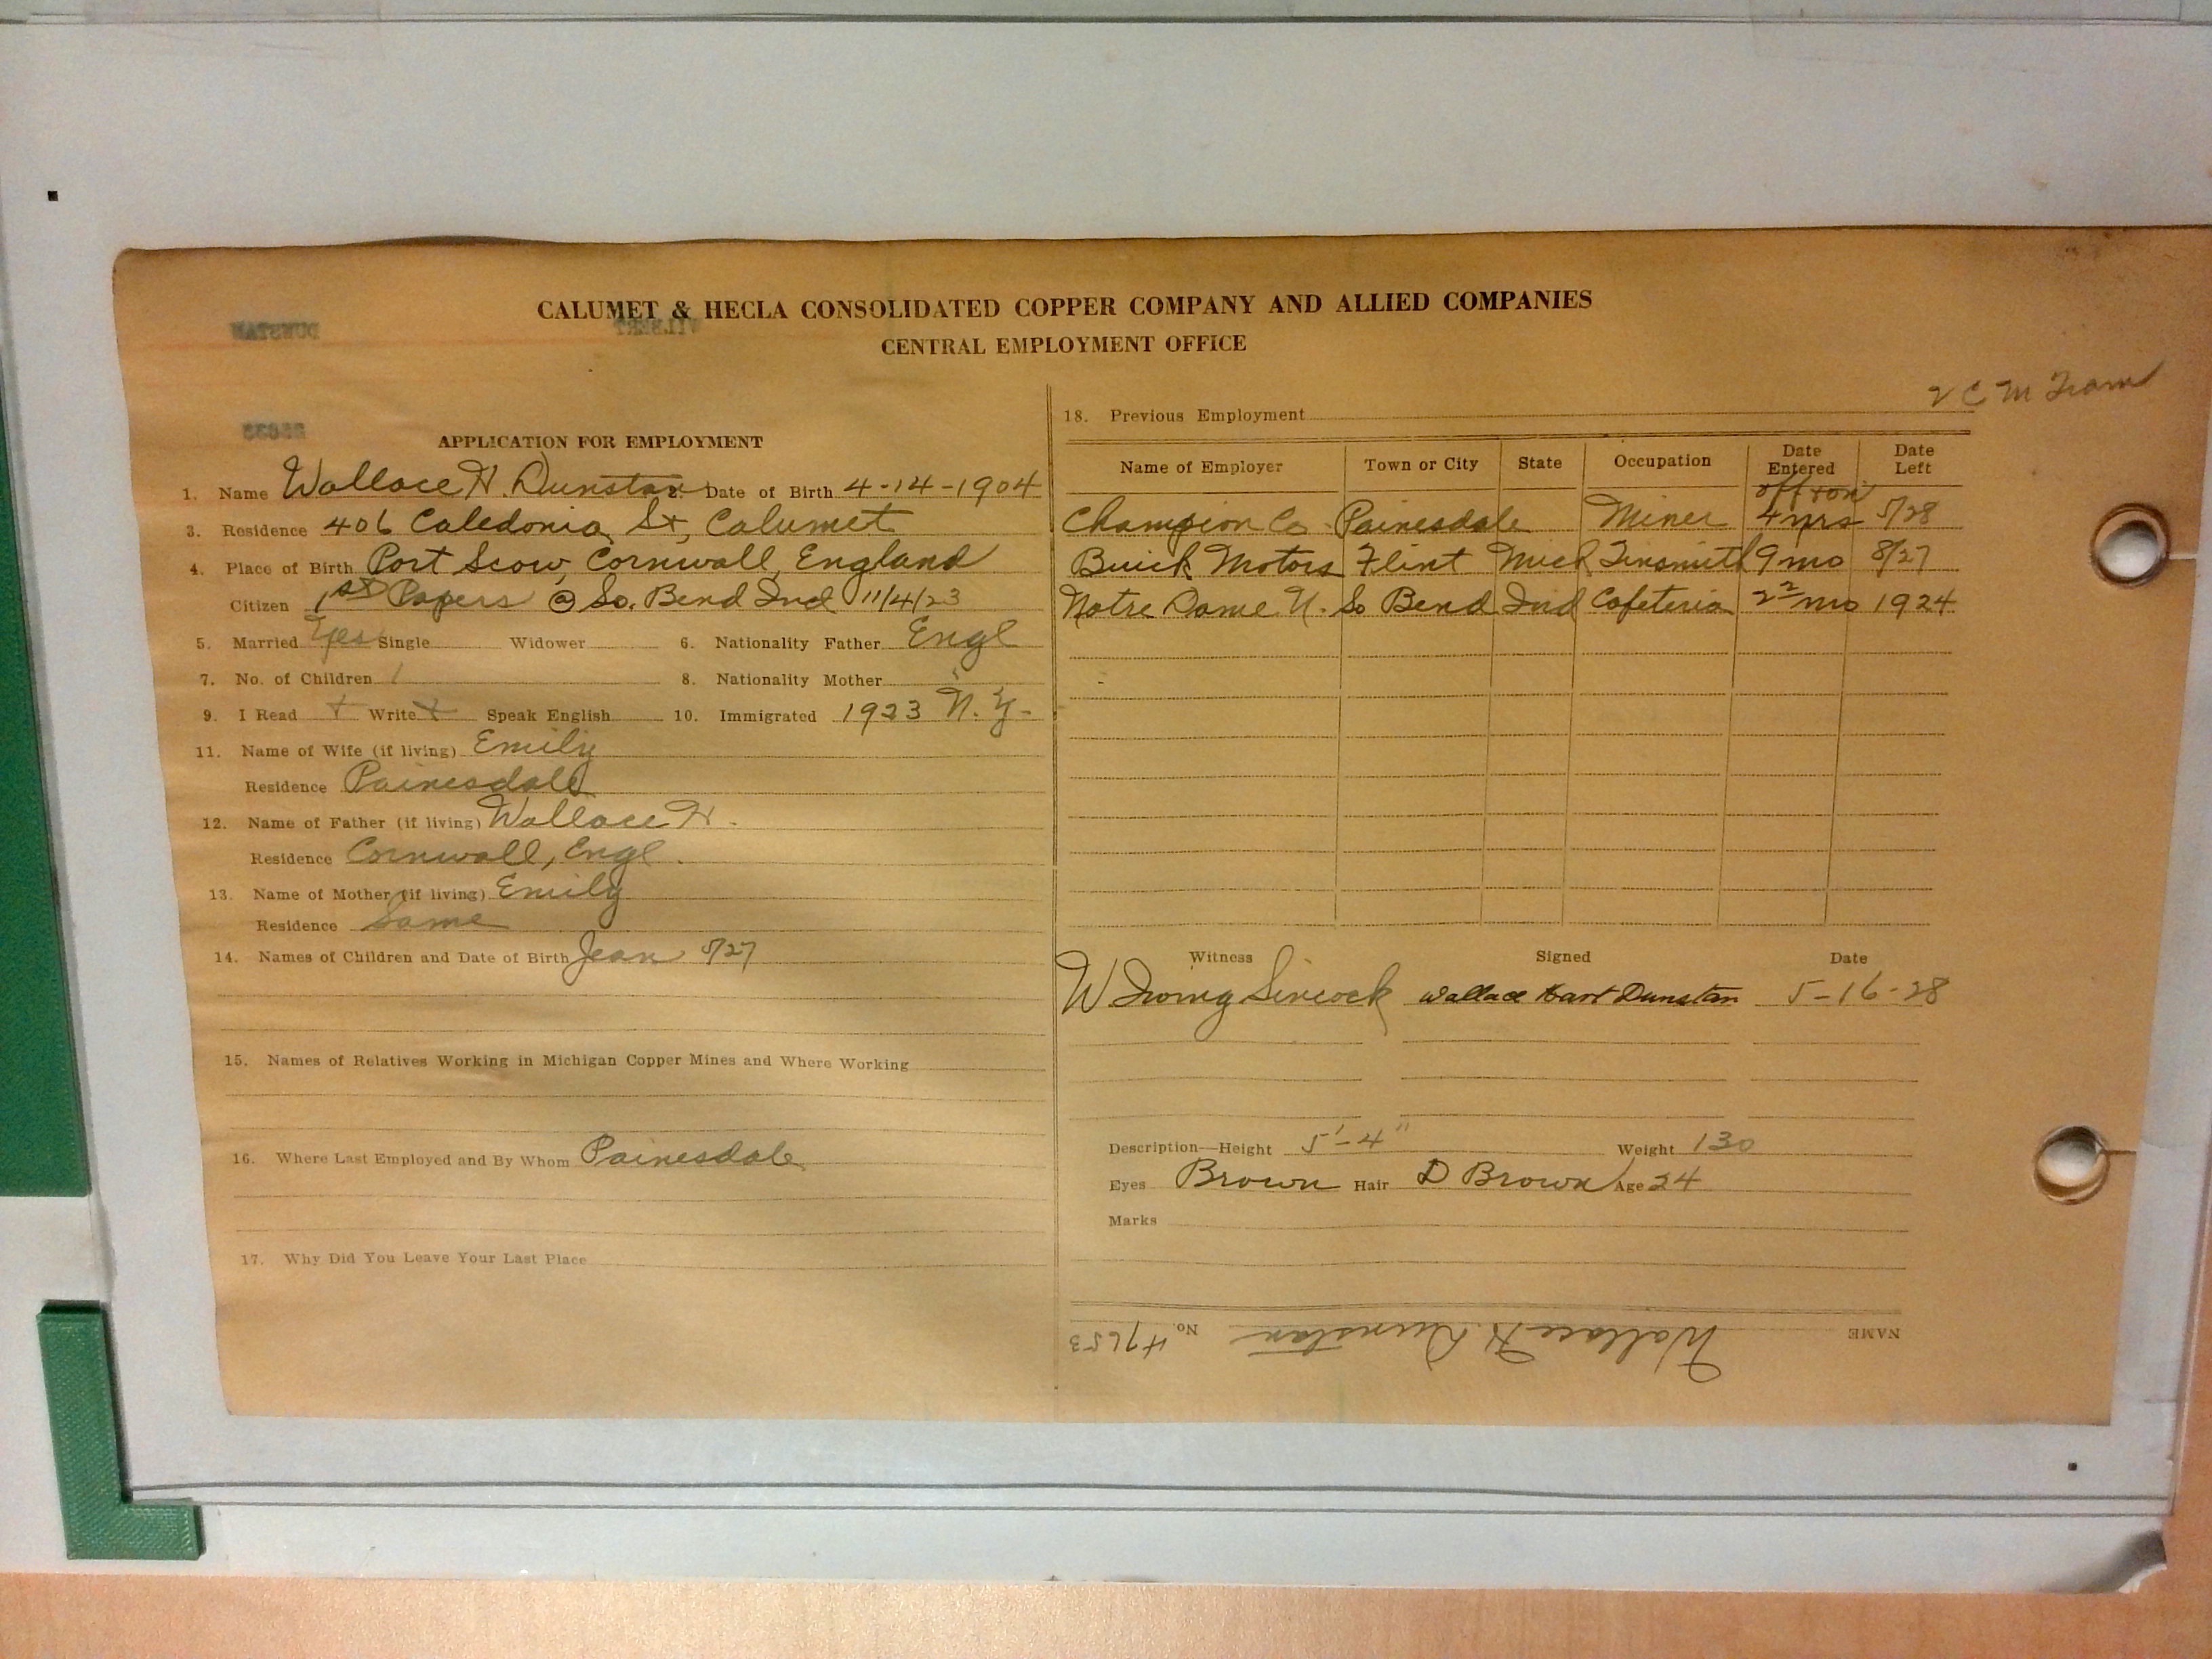 CALUMET & HECLA CONSOLIDATED COPPER COMPANY AND ALLIED COMPANIES
DUNSTAN WILBERT
CENTRAL EMPLOYMENT OFFICE
APPLICATION FOR EMPLOYMENT
1. Name Wallace H. Dunstan 2. Date of Birth 4-14-1904
3. Residence 406 Caledonia St, Calumet
4. Place of Birth Port Scow, Cornwall, England
Citizen 1st Papers @ So. Bend Ind 11/4/23
5. Married Yes Single Widower 6. Nationality Father Engl
7. No. of Children 1 8. Nationality Mother "
9. I Read + Write + Speak English 10. Immigrated 1923 N.Y.
11. Name of Wife (if living) Emily
Residence Painesdale
12. Name of Father (if living) Wallace H.
Residence Cornwall, Engl.
13. Name of Mother (if living) Emily
Residence Same
14. Names of Children and Date of Birth Jean 5/27
15. Names of Relatives Working in Michigan Copper Mines and Where Working
16. Where Last Employed and By Whom Painesdale
17. Why Did You Leave Your Last Place
C M Tram
18. Previous Employment
Name of Employer Town or City State Occupation Date Entered Date Left
off + on
Champion Co Painesdale Miner 4 yrs 5/28
Buick Motors Flint Mich Tinsmith 9 mo 8/27
Notre Dame U. So Bend Ind Cafeteria mo 1924
Witness Signed Date
W Irving Sincock Wallace Hart Dunstan 5-16-28
Description—Height 5'-4" Weight 130
Eyes Brown Hair D Brown Age 24
Marks
NAME Wallace H. Dunstan No. 47653